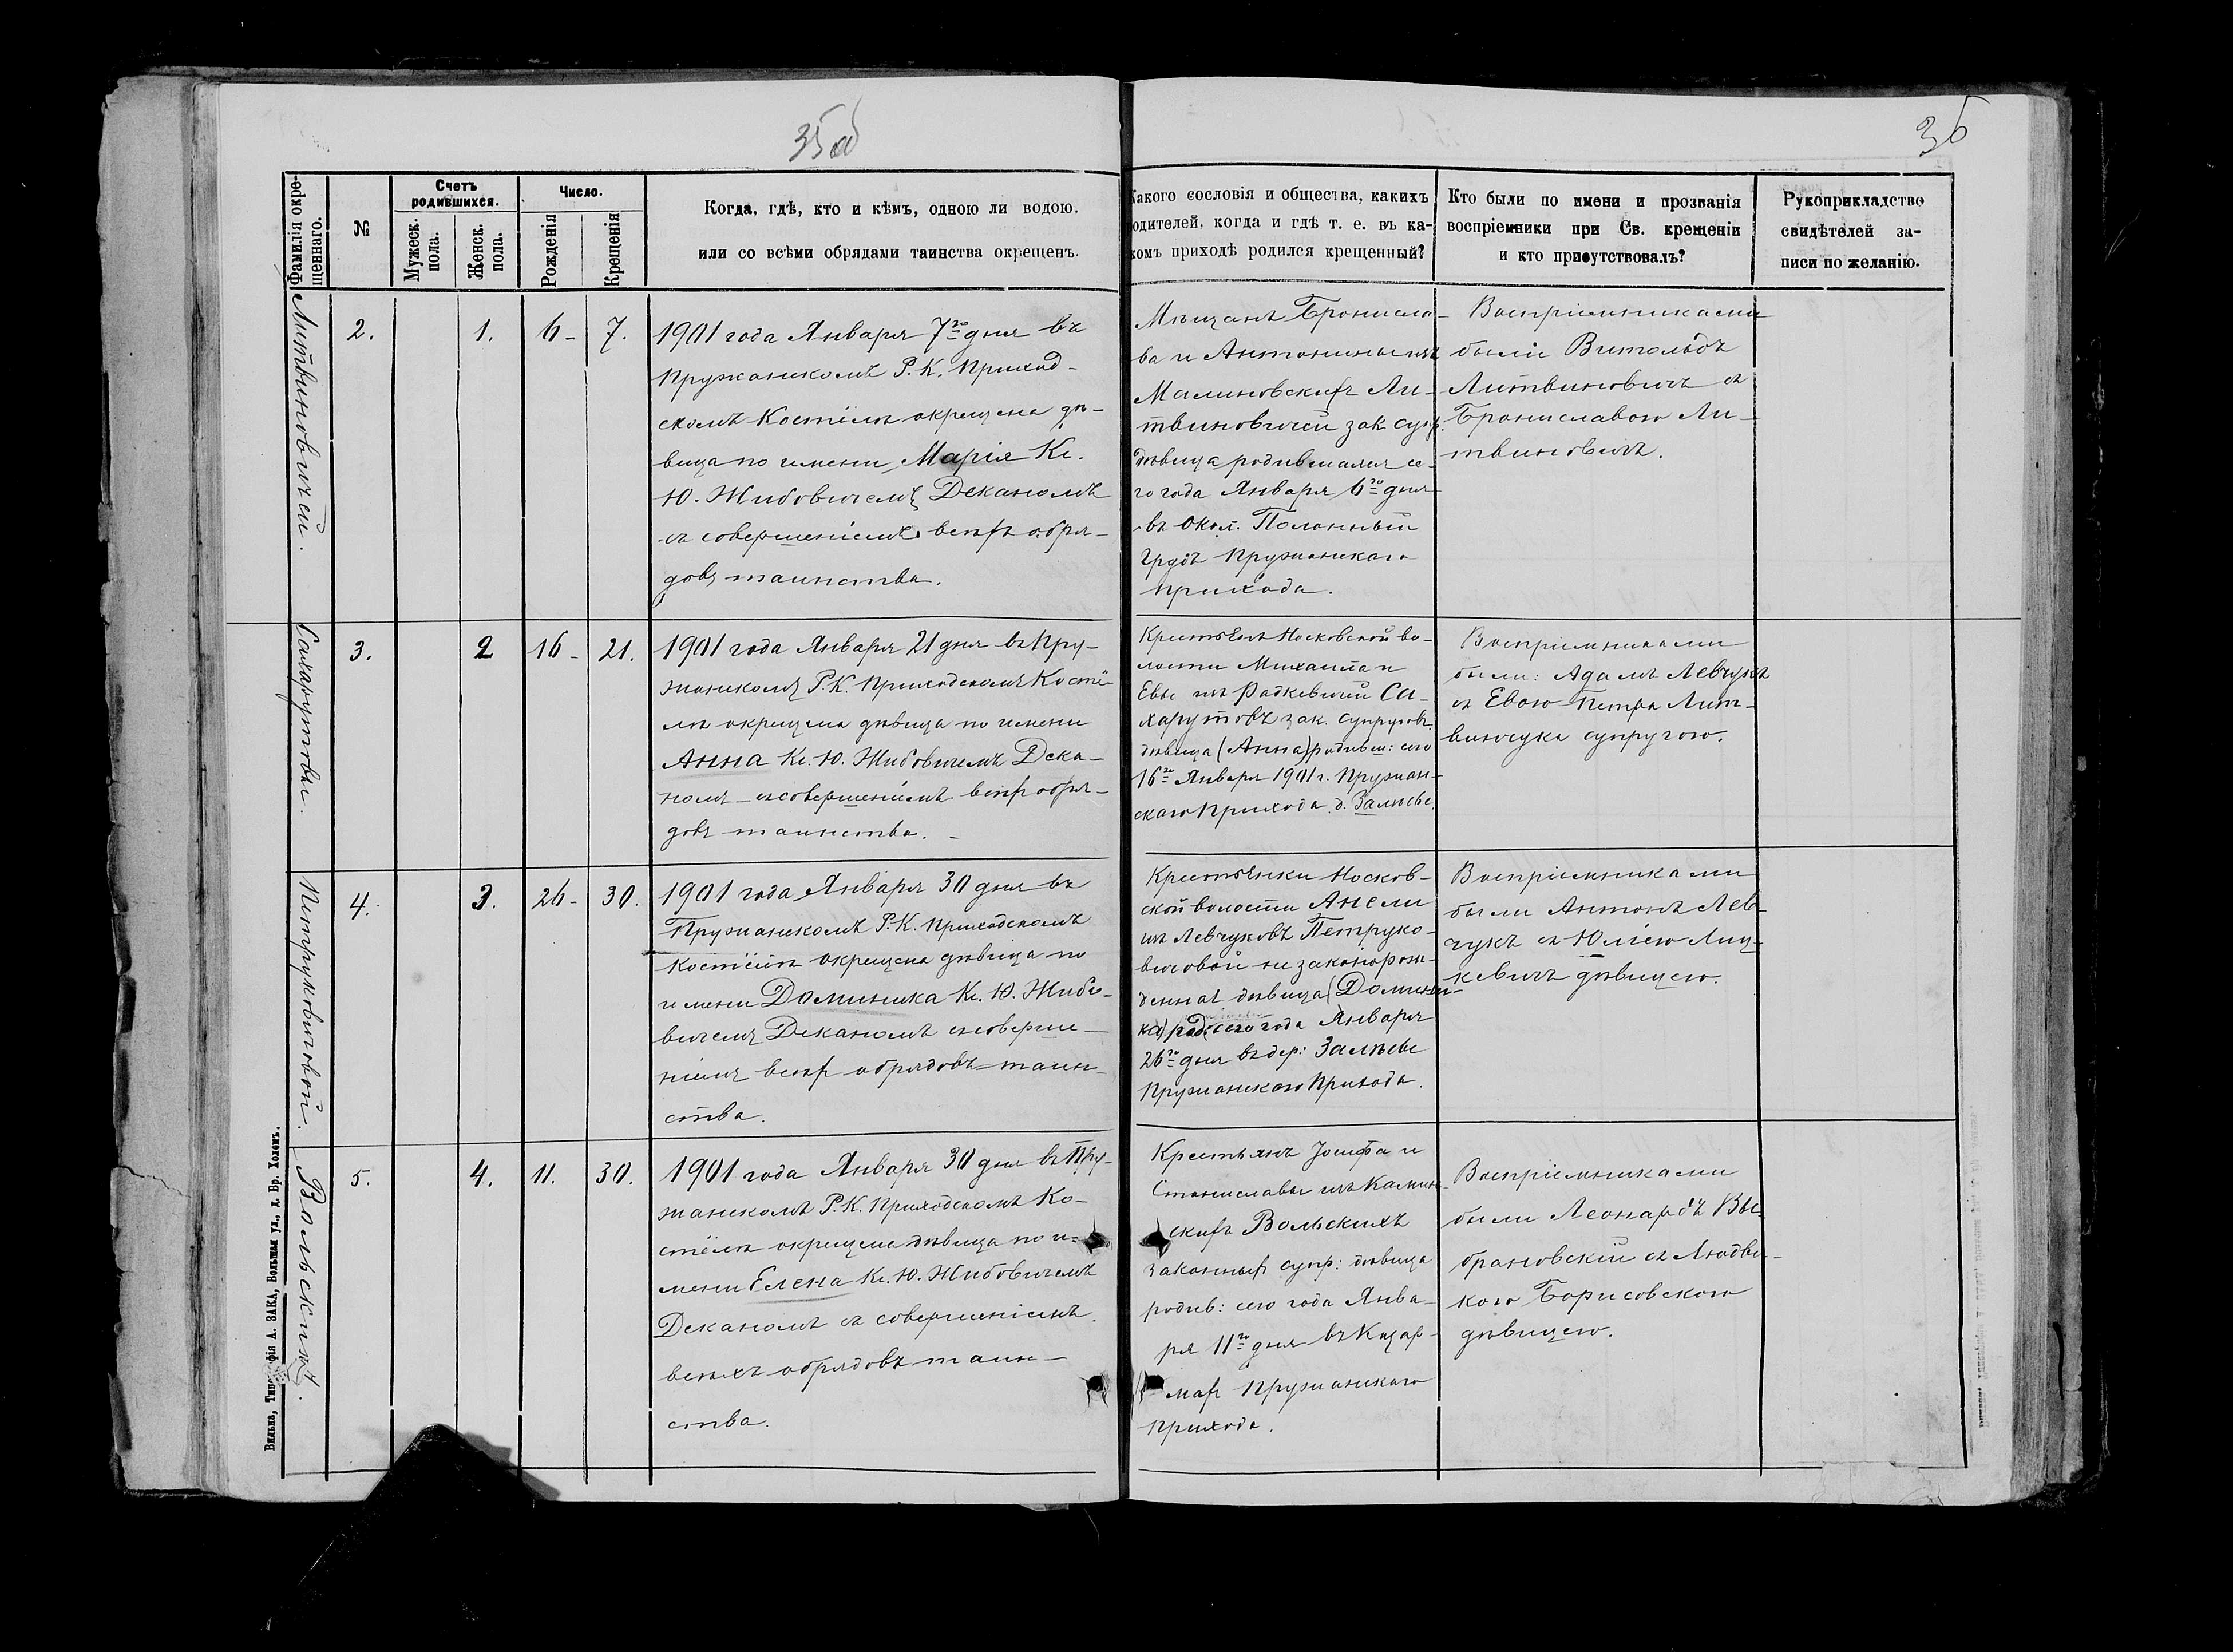 35об
36
Фамилія окре-
щеннаго.
№
Счетъ
родившихся.
Мужеск.
пола.
Женск.
пола.
Число.
Рожденія
Крещенія
Когда, гдѣ, кто и кѣмъ, одною ли водою.
или со всѣми обрядами таинства окрещенъ.
Какого сословія и общества, какихъ
родителей, когда и гдѣ т. е. въ ка-
комъ приходѣ родился крещенный?
Кто были по имени и прозванія
воспріемники при Св. крещеніи
и кто присутствовалъ?
Рукоприкладство
свидѣтелей за-
писи по желанію.
Литвиновичей.
2.
1.
6-
7.
1901 года Января 7го дня въ
Пружанскомъ Р. К. Приход-
скомъ Костёлѣ окрещена дѣ-
вица по имени Марія Кс.
Ю. Жибовичемъ Деканомъ
съ совершеніемъ всѣхъ обря-
довъ таинства.
Мѣщанъ Бронисла-
ва и Антонины изъ
Малиновскихъ Ли-
твиновичей зак. супр.
дѣвица родившаяся се-
го года Января 6го дня
въ окол. Полонный
Грудъ Пружанскаго
прихода.
Воспріемниками
были Витольдъ
Литвиновичъ съ
Брониславою Ли-
твиновичъ.
Сахарутовъ.
3.
2
16-
21.
1901 года Января 21 дня въ Пру-
жанскомъ Р. К. Приходскомъ Костё-
лѣ окрещена дѣвица по имени
Анна Кс. Ю. Жибовичемъ Дека-
номъ съ совершеніемъ всѣхъ обря-
довъ таинства.
Крестьянъ Носковской во-
лости Михаила и
Евы изъ Радкевичей Са-
харутовъ зак. супруговъ
дѣвица (Анна) родивш: сего
16го Января 1901 г. Пружан-
скаго Прихода д. Залѣсье.
Воспріемниками
были: Адамъ Левчукъ
съ Евою Петра Лит-
винчука супругою.
Петруковичовой.
4.
3.
26-
30.
1901 года Января 30 дня въ
Пружанскомъ Р. К. Приходскомъ
Костёлѣ окрещена дѣвица по
имени Доминика Кс. Ю. Жибо-
вичемъ Деканомъ съ соверше-
ніемъ всѣхъ обрядовъ таин-
ства.
Крестьянки Носков-
ской волости Анели
изъ Левчуковъ Петруко-
вичовой не законорож-
денная дѣвица (Домини-
ка) род. сего года Января
26го дня въ дер: Залѣсье
Пружанскаго Прихода.
Воспріемниками
были Антонъ Лев-
чукъ съ Юліею Лиц-
кевичъ дѣвицею.
Вольскихъ.
5.
4.
11.
30.
1901 года Января 30 дня въ Пру-
жанскомъ Р. К. Приходскомъ Ко-
стёлѣ окрещена дѣвица по и-
мени Елена Кс. Ю. Жибовичемъ
Деканомъ съ совершеніемъ
всѣхъ обрядовъ таин-
ства.
Крестьянъ Іосифа и
Станиславы изъ Камин-
скихъ Вольскихъ
законныхъ супр: дѣвица
родив: сего года Янва-
ря 11го дня въ
Пружанскаго
Прихода.
Воспріемниками
были Леонардъ Вы-
брановскій съ Людви-
кою Борисовскою
дѣвицею.
Вильна, Типографія А. ЗАКА, Большая ул., д. Бр. Холемъ.